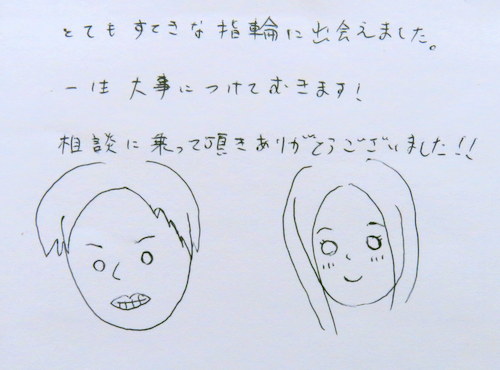 とてもすてきな指輪に出会えました。
一生大事につけてむきます!
相談に乗って頂きありがとうございました!!